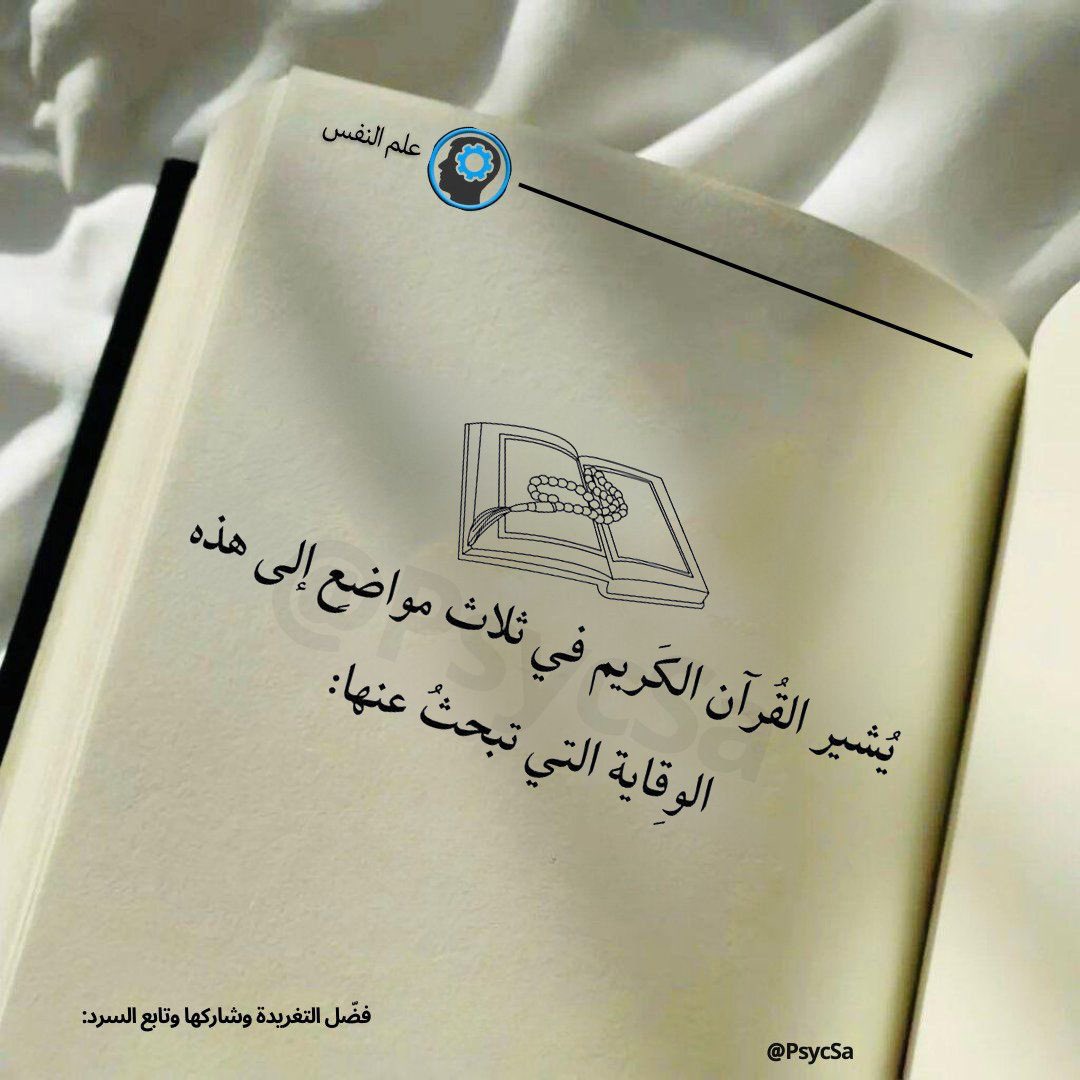 علم النفس
يُشير القُرآن الكَريم في ثلاث مواضعِ إلى هذه
الوقِاية التي تبحثُ عنها:
@PsycSa
فضّل التغريدة وشاركها وتابع السرد:
@PsycSa